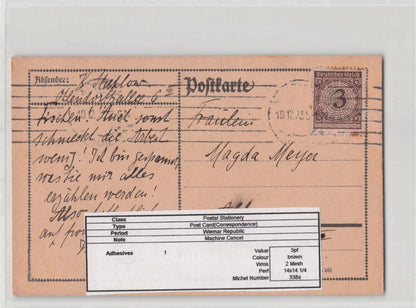 Absender:
Postkarte
Deutsches Reich
3
10.12.
Fräulein
tischen! Auch sonst
schmeckt die Arbeit
wenig! Ich bin gespannt,
was Sie mir alles
erzählen werden!
Also
auf
Magda Meyer
Class Postal Stationery
Type Post Card(Correspondence)
Period Wiemar Republic
Note Machine Cancel
Adhesives 1
Value 3pf
Colour brown
Wmk 2 Mesh
Perf 14x14.1/4
Michel Number 338a